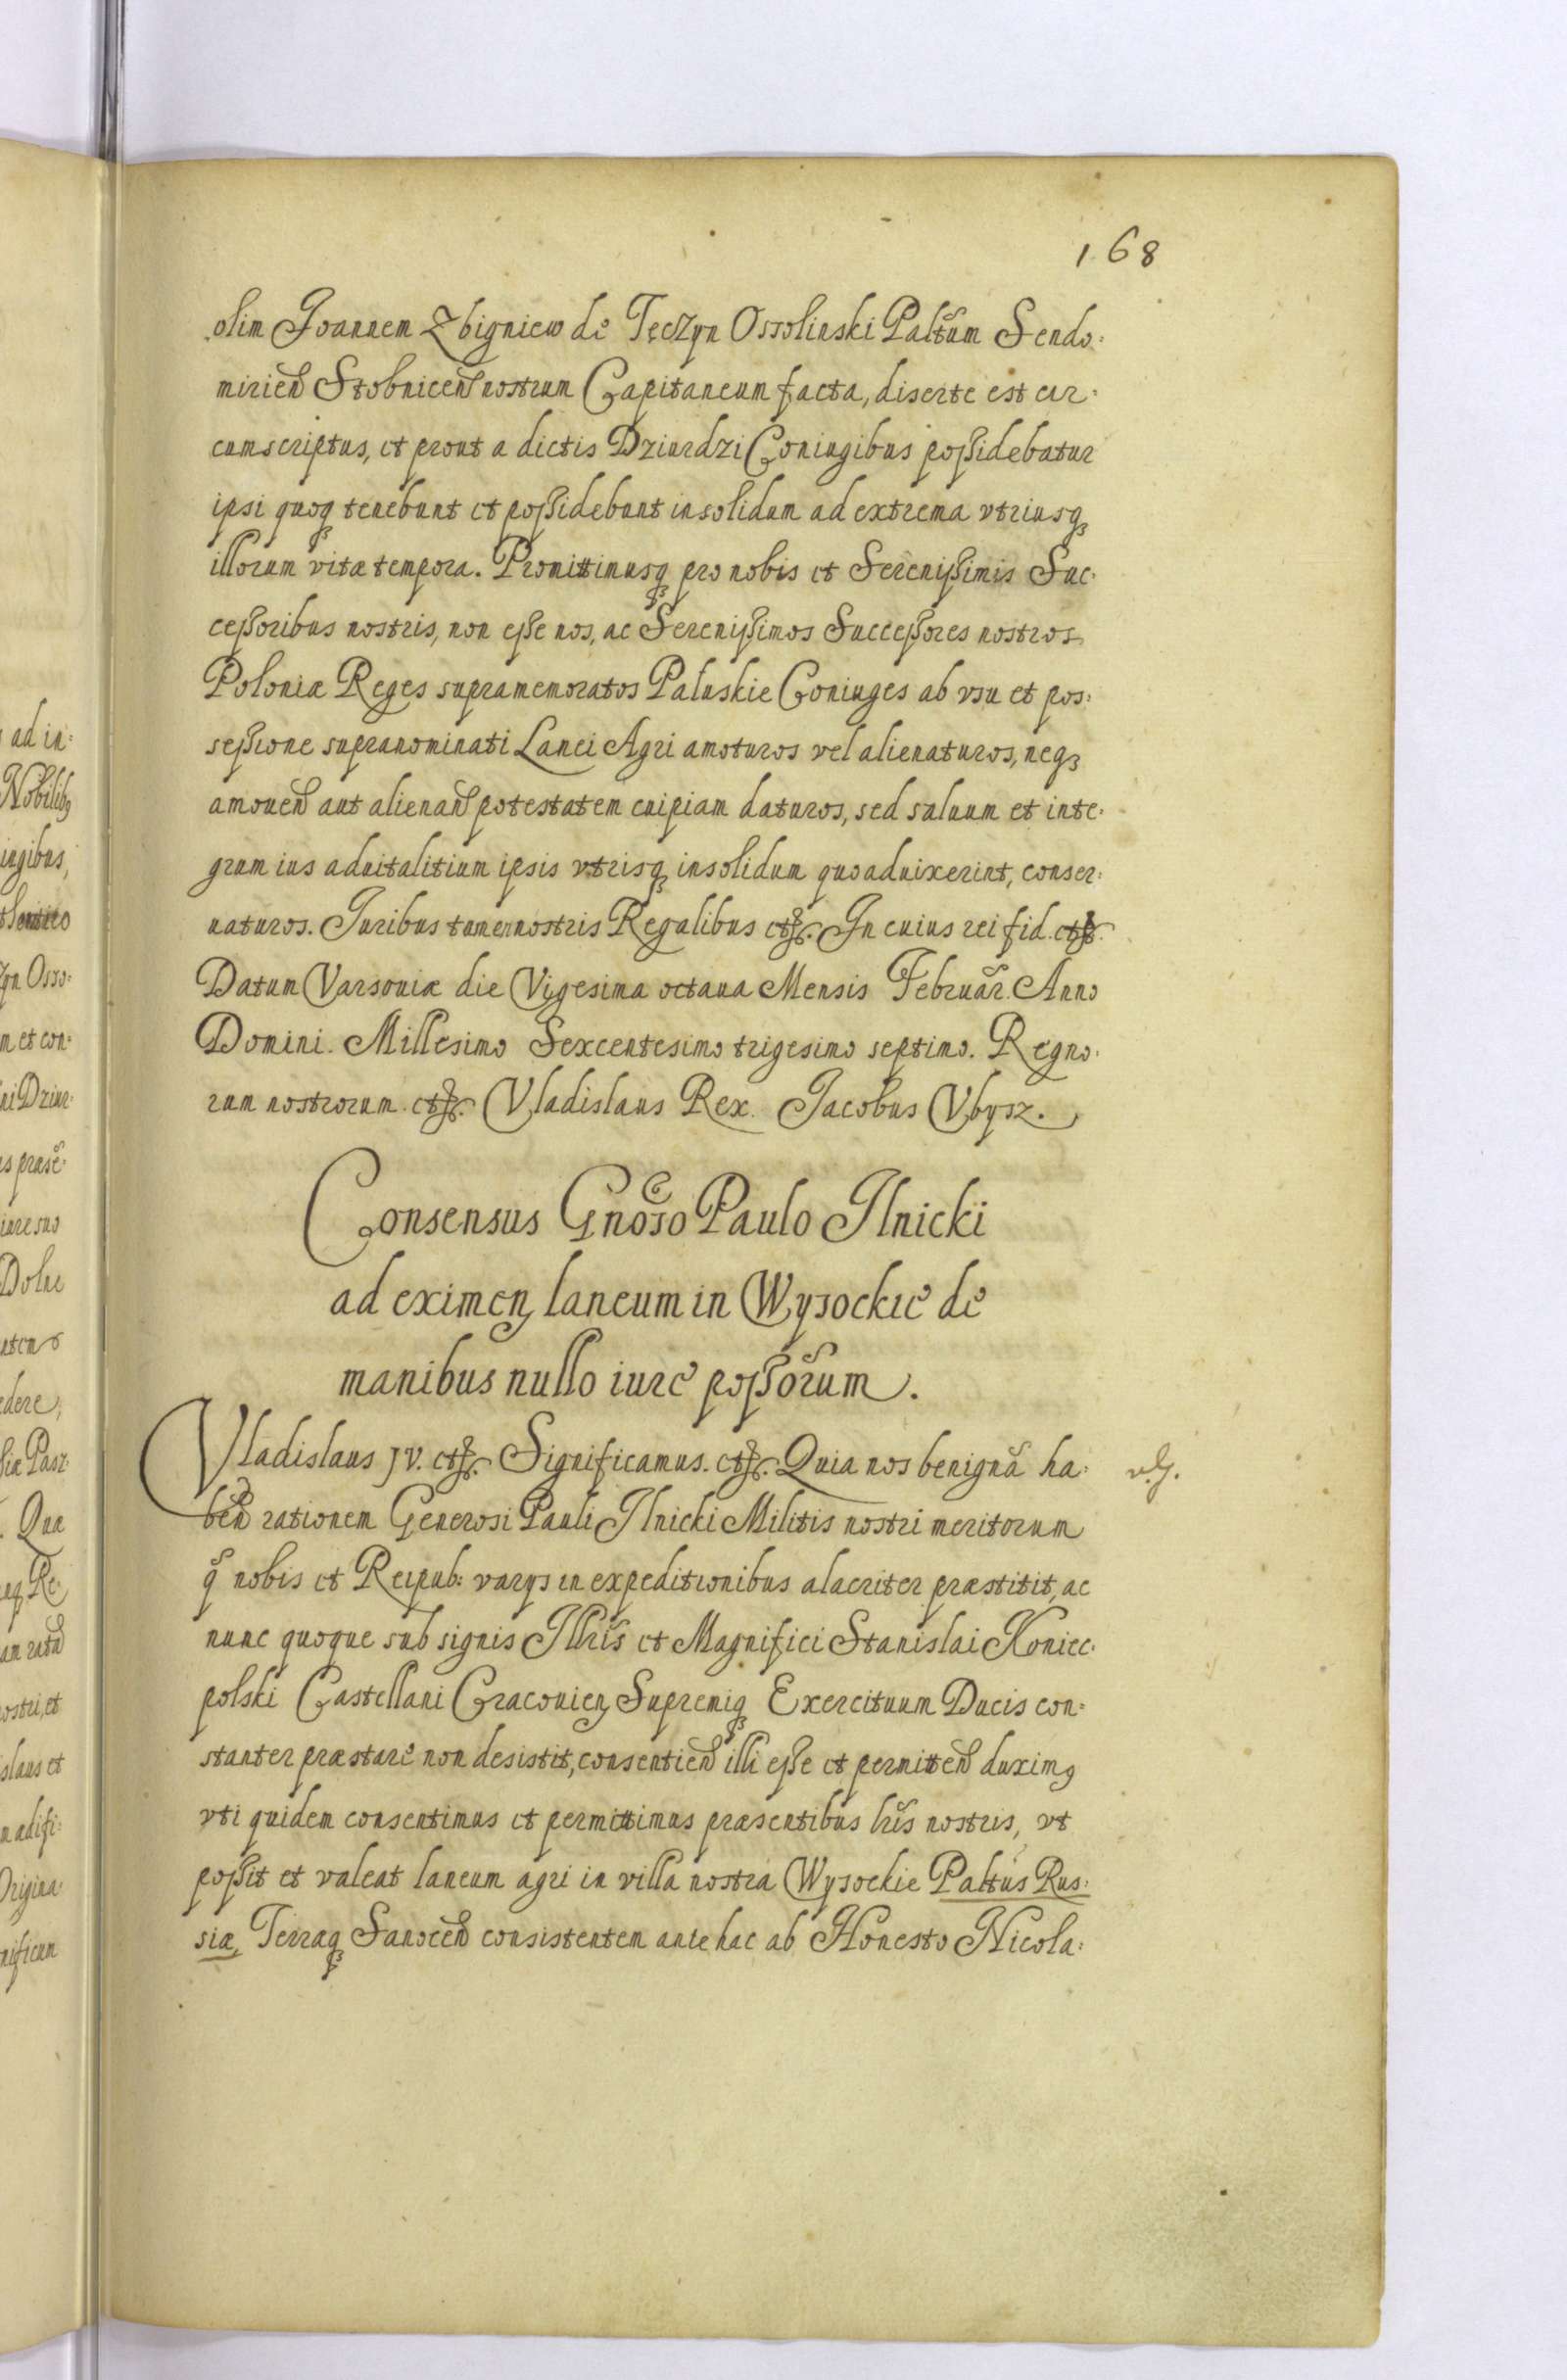 168
olim Joannem Zbigniew de Tęczyn Ossolinski Paltum Sendo:
mirien Stobnicen nostrum Capitaneum facta, diserte est cir:
cumscriptus, et prout a dictis Dziurdzi Coniugibus possidebatur
ipsi quoq tenebunt et possidebunt insolidum ad extrema vtriusq
illorum vitæ tempora. Promittimusq pro nobis et Serenissimis Suc:
cessoribus nostris, non esse nos, ac Serenissimos Successores nostros
Poloniæ Reges supramemoratos Paluskie Coniuges ab vsu et pos:
sessione supranominati Lanei Agri amoturos vel alienaturos, neq
amouen aut alienan potestatem cuipiam daturos, sed saluum et inte:
grum ius aduitalitium ipsis vtrisq insolidum quoaduixerint, conser:
uaturos. Juribus tamen nostris Regalibus etc. In cuius rei fid. etc.
Datum Varsouiæ die Vigesima octaua Mensis Februar. Anno
Domini. Millesimo Sexcentesimo trigesimo septimo. Regno:
rum nostrorum. etc. Vladislaus Rex. Jacobus Vbysz.
Consensus Gnoso Paulo Ilnicki
ad eximen laneum in Wysockie de
manibus nullo iure possorum.
Vladislaus IV. etc. Significamus. etc. Quia nos benignã ha:
ben rationem Generosi Pauli Ilnicki Militis nostri meritorum
q nobis et Reipub: varys in expeditionibus alacriter præstitit, ac
nunc quoque sub signis Illris et Magnifici Stanislai Koniec:
polski Castellani Cracouien Supremiq Exercituum Ducis con:
stanter præstare non desistit, consentien illi esse et permitten duximq
vti quidem consentimus et permittimus præsentibus lris nostris, vt
possit et valeat laneum agri in villa nostra Wysockie Paltus Rus:
siæ, Terraq Sanocen consistentem antehac ab Honesto Nicola:
ad in:
Nobilibq
iugibus,
Osso:
n et con:
Dziur:
iure suo
Dolne
edere,
Quæ
ostri, et
islaus et
Origina:
nificum